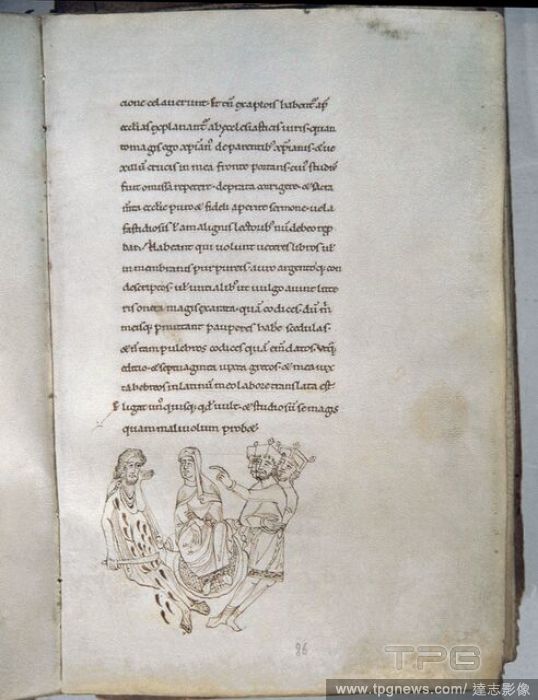 cione celaverunt. Et cũ exaplois habent᷑ ap̃
ecclias explanant᷑ ab ecclesiasticis viris. quan
to magis ego xp̃ian᷒ de parentib᷒ xp̃ianis. & ve
xillũ crucis in mea fronte portans. cui᷒ studiũ
fuit omissa repetere. depravata corrigere. & sacra
m̃ta ecclie puro & fideli aperire sermone. vel a
fastidiosis vl̃ a malignis lectorib᷒ nũ debeo rep̃
bari. Habeant qui volunt veteres libros vl̃
in membranis purpureis. auro argentoq;
descriptos. vl̃ uncialib᷒ ut vulgo aiunt litte
ris onera magis exarata. quã codices. dũ m̃
meisq; p̃mittant pauperes habere scedulas.
& ñ tam pulchros codices quã em̃datos. utraq;
editio. & septuaginta iuxta grecos. & mea iux
ta hebreos in latinũ meo labore translata est.
Eligat un᷒quisq; qđ vult. & studiosũ se magis
quam malivolum probet.
86
TPG
www.tpgnews.com / 達志影像